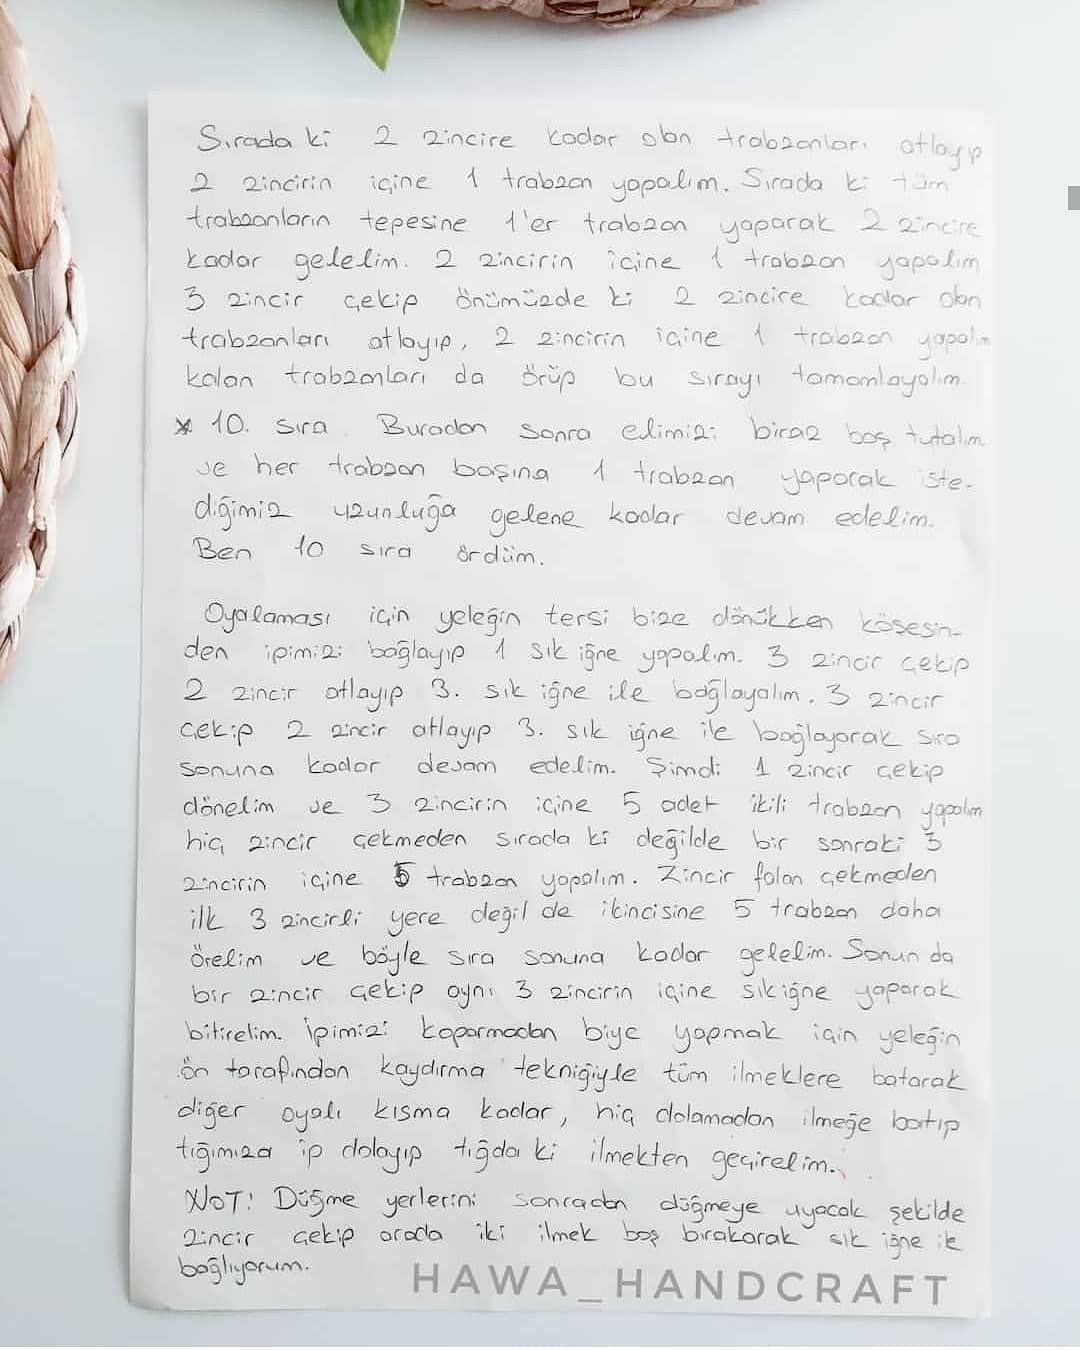 Sırada ki 2 zincire kadar olan trabzanları atlayıp
2 zincirin içine 1 trabzan yapalım. Sırada ki tüm
trabzanların tepesine 1'er trabzan yaparak 2 zincire
kadar gelelim. 2 zincirin içine 1 trabzan yapalım
3 zincir çekip önümüzde ki 2 zincire kadar olan
trabzanları atlayıp, 2 zincirin içine 1 trabzan yapalım
kalan trabzanları da örüp bu sırayı tamamlayalım.
* 10. sıra Buradan sonra elimizi biraz boş tutalım
ve her trabzan başına 1 trabzan yaparak iste-
diğimiz uzunluğa gelene kadar devam edelim.
Ben 10 sıra ördüm.
Oyalaması için yeleğin tersi bize dönükken köşesin-
den ipimizi bağlayıp 1 sık iğne yapalım. 3 zincir çekip
2 zincir atlayıp 3. sık iğne ile bağlayalım. 3 zincir
çekip 2 zincir atlayıp 3. sık iğne ile bağlayarak sıra
sonuna kadar devam edelim. Şimdi 1 zincir çekip
dönelim ve 3 zincirin içine 5 adet ikili trabzan yapalım
hiç zincir çekmeden sırada ki değilde bir sonraki 3
zincirin içine 5 trabzan yapalım. Zincir falan çekmeden
ilk 3 zincirli yere değil de ikincisine 5 trabzan daha
örelim ve böyle sıra sonuna kadar gelelim. Sonun da
bir zincir çekip aynı 3 zincirin içine sık iğne yaparak
bitirelim. İpimizi koparmadan biye yapmak için yeleğin
ön tarafından kaydırma tekniğiyle tüm ilmeklere batarak
diğer oyalı kısma kadar, hiç dolamadan ilmeğe batıp
tığımıza ip dolayıp tığda ki ilmekten geçirelim.
NOT! Düğme yerlerini sonradan düğmeye uyacak şekilde
zincir çekip arada iki ilmek boş bırakarak sık iğne ile
bağlıyorum.
HAWA_HANDCRAFT